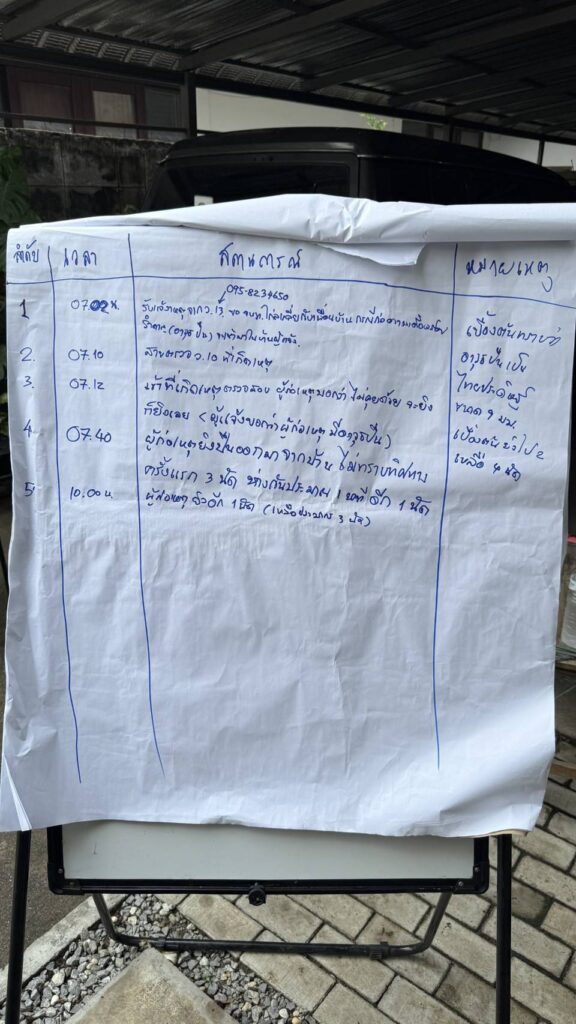 ลำดับ เวลา สถานการณ์ หมายเหตุ
095-8234650
1 07.02 น. รับแจ้งเหตุจาก ว.13 ไกล่เกลี่ยกับเพื่อนบ้าน กรณีก่อ
(อาวุธปืน)
2. 07.10 สายตรวจ ว.10 ที่เกิดเหตุ
3. 07.12 เข้าที่เกิดเหตุตรวจสอบ ผู้ก่อเหตุบอกว่า ไม่คุยด้วย จะยิง
ก็ยิงเลย (ผู้แจ้งบอกว่าผู้ก่อเหตุ มีอาวุธปืน)
4. 07.40 ผู้ก่อเหตุยิงปืนออกมาจากบ้าน ไม่ทราบทิศทาง
ครั้งแรก 3 นัด ห่างกันประมาณ 1 นาที อีก 1 นัด
5 10.00 น. ผู้ก่อเหตุ ยิงอีก 1 นัด (เหลือประมาณ 3 นัด)
เบื้องต้นทราบว่า
อาวุธปืนเป็น
ไทยประดิษฐ์
ขนาด 9 มม.
เบื้องต้น
เหลือ 4 นัด